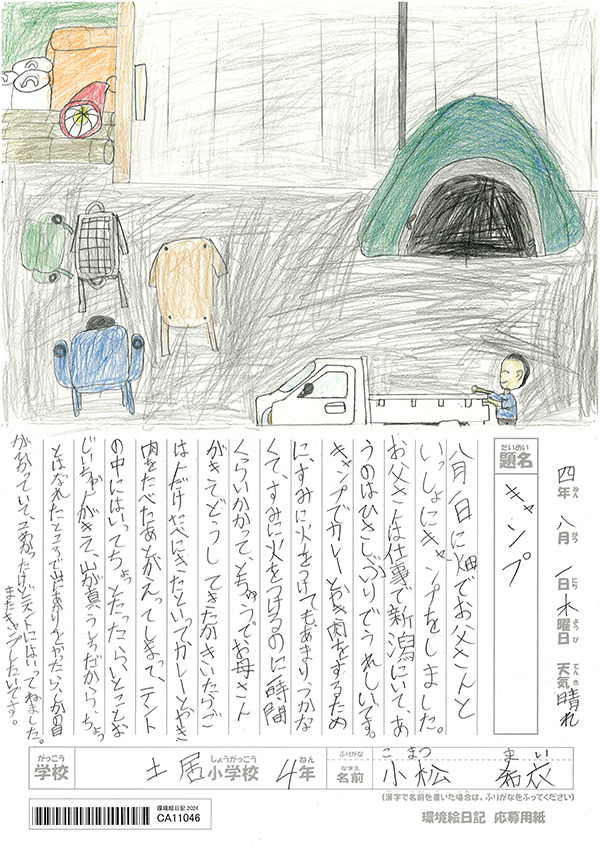 四年 八月 1日 木曜日 天気 晴れ
ねん がつ にち ようび てんき
だいめい
題名
キャンプ
八月1日に畑でお父さんと
いっしょにキャンプをしました。
お父さんは仕事で新潟にいて、あ
うのはひさしぶりでうれしいです。
キャンプでカレーとやき肉をするため
に、すみに火をつけてもあまりつかな
くて、すみに火をつけるのに一時間
くらいかかって、とちゅうでお母さん
がきて、どうしてきたかきいたらご
はんだけたべにきたといってカレーとやき
肉をたべたあとかえってしまって、テント
の中にはいってちょっとたったら、いとことお
じいちゃんがきて、山が真うしろだから、ちょっ
とはなれたところで山にあかりを
がかかっていて、こわかったけどテントにはいってねました。
またキャンプしたいです。
がっこう
学校
土居 小学校 4年
しょうがっこう ねん
ふりがな こまつ まい
なまえ
名前 小松 衣
(漢字で名前を書いた場合は、ふりがなをふってください)
環境絵日記 2024
CA11046
環境絵日記 応募用紙